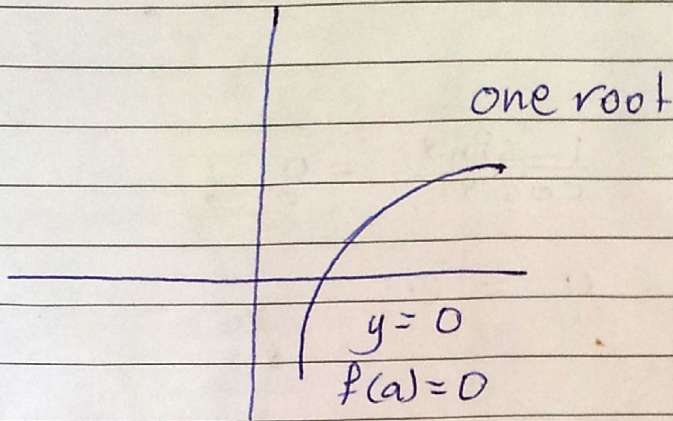 one root
y = 0
f(a) = 0